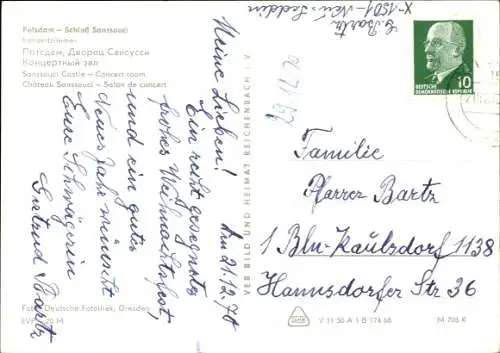 Potsdam – Schloß Sanssouci
Konzertzimmer
Потсдам, Дворец Сансуси
Концертный зал
Sanssouci Castle – Concert room
Château Sanssouci – Salon de concert
G. Bartz
X-1501-Neu-Seddin
10
DEUTSCHE
DEMOKRATISCHE REPUBLIK
Am 21.12.70
Meine Lieben!
Ein recht gesegnetes
frohes Weihnachtsfest
und ein gutes
Neues Jahr wünscht
Eure Schwägerin
Gertrud Bartz
Familie
Pfarrer Bartz
1 Bln-Kaulsdorf 1138
Hannsdorfer Str 36
VEB BILD UND HEIMAT REICHENBACH I. V.
Foto: Deutsche Fotothek, Dresden
EVP 20 M
V 11 50 A 1 B 174 68
M 705 K